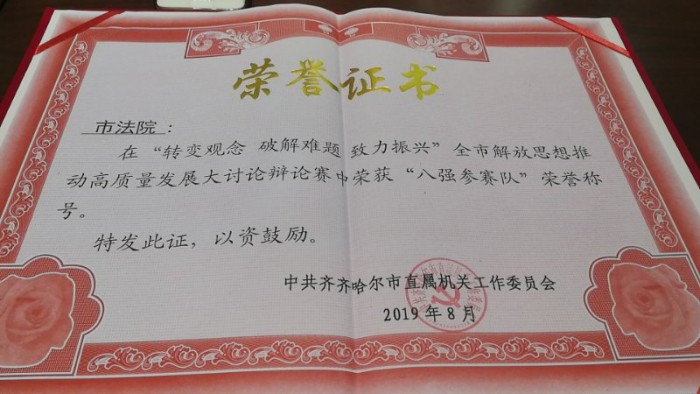 荣誉证书
市法院：
在“转变观念 破解难题 致力振兴”全市解放思想推
动高质量发展大讨论辩论赛中荣获“八强参赛队”荣誉称
号。
特发此证，以资鼓励。
中共齐齐哈尔市直属机关工作委员会
2019年8月